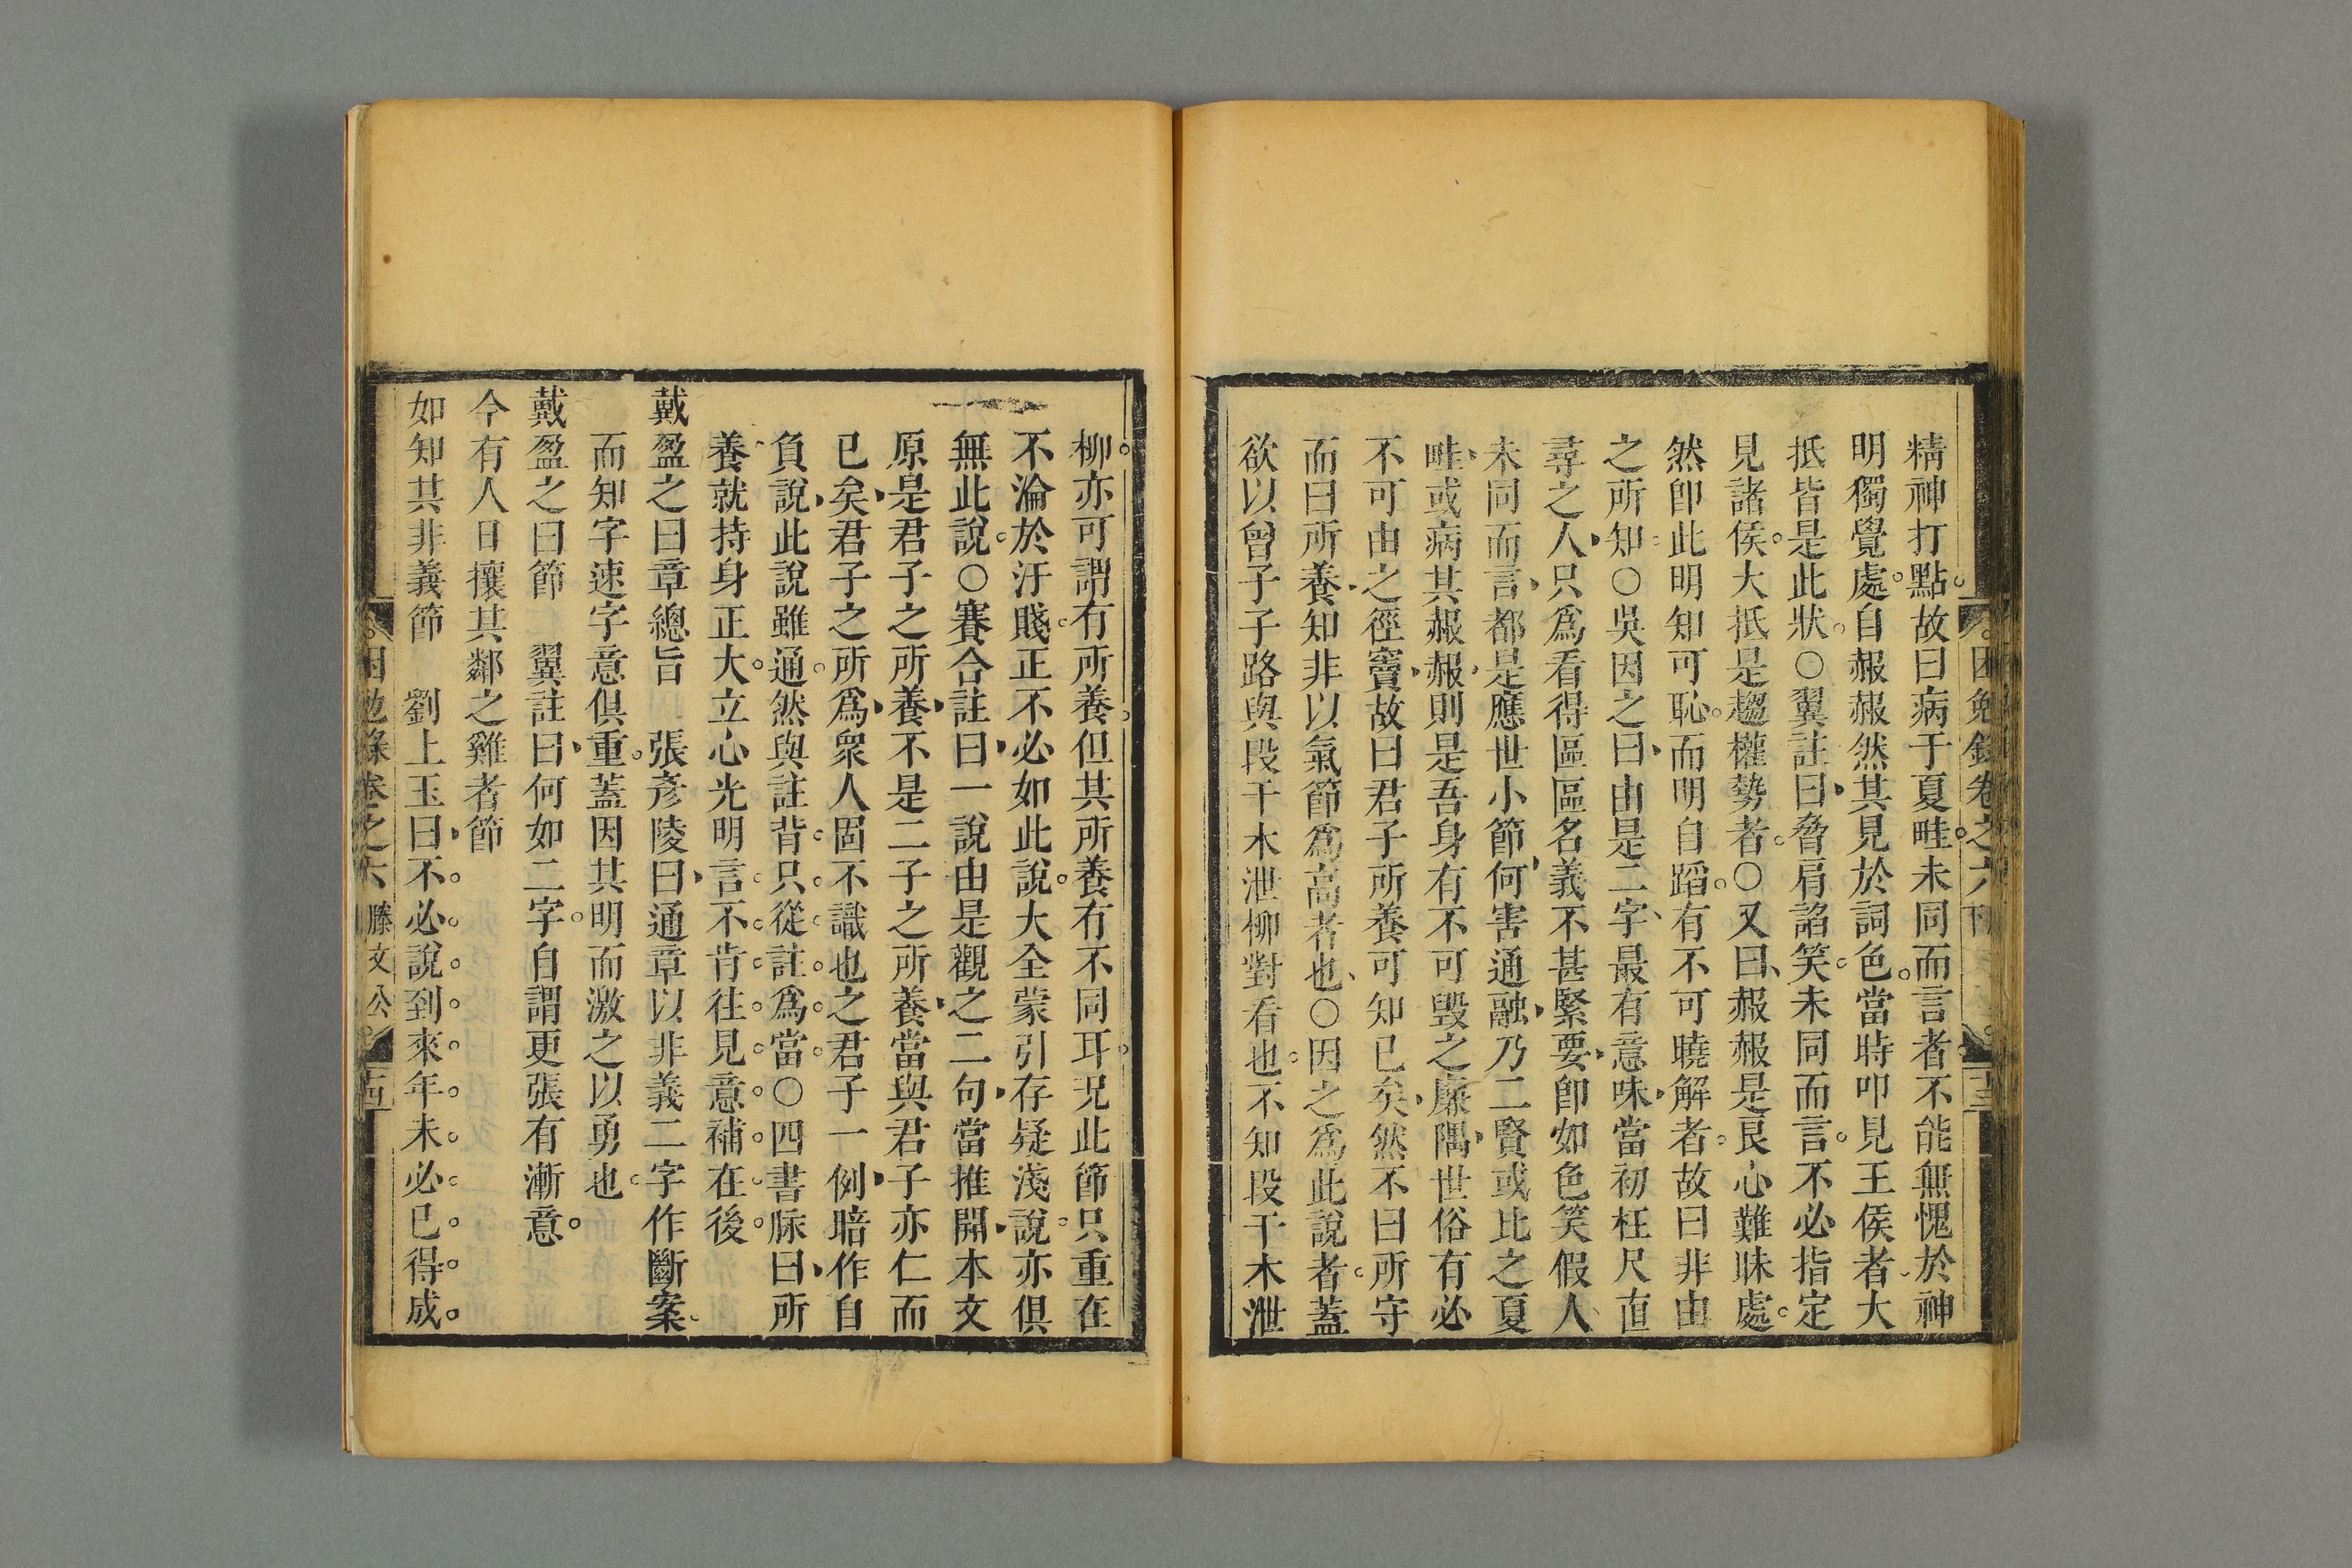 精神打點故曰病于夏畦未同而言者不能無愧於神
明獨覺處自赧赧然其見於詞色當時叩見王侯者大
抵皆是此狀○翼註曰脅肩諂笑未同而言不必指定
見諸侯大抵是趨權勢者○又曰赧赧是良心難昧處
然卽此明知可恥而明自蹈有不可曉解者故曰非由
之所知○吳因之曰由是二字最有意味當初枉尺直
尋之人只爲看得區區名義不甚緊要卽如色笑假人
未同而言都是應世小節何害通融乃二賢或比之夏
畦或病其赧赧則是吾身有不可毀之廉隅世俗有必
不可由之徑竇故曰君子所養可知已矣然不曰所守
而曰所養知非以氣節爲高者也○因之爲此說者蓋
欲以曾子子路與段干木泄柳對看也不知段干木泄
柳亦可謂有所養但其所養有不同耳况此節只重在
不淪於汙賤正不必如此說大全蒙引存疑淺說亦俱
無此說○賽合註曰一說由是觀之二句當推開本文
原是君子之所養不是二子之所養當與君子亦仁而
已矣君子之所爲衆人固不識也之君子一例暗作自
負說此說雖通然與註背只從註爲當○四書脉曰所
養就持身正大立心光明言不肯往見意補在後
戴盈之曰章總旨　張彥陵曰通章以非義二字作斷案
而知字速字意俱重蓋因其明而激之以勇也
戴盈之曰節　翼註曰何如二字自謂更張有漸意
今有人日攘其鄰之雞者節
如知其非義節　劉上玉曰不必說到來年未必已得成
困勉錄卷之六　滕文公　十五